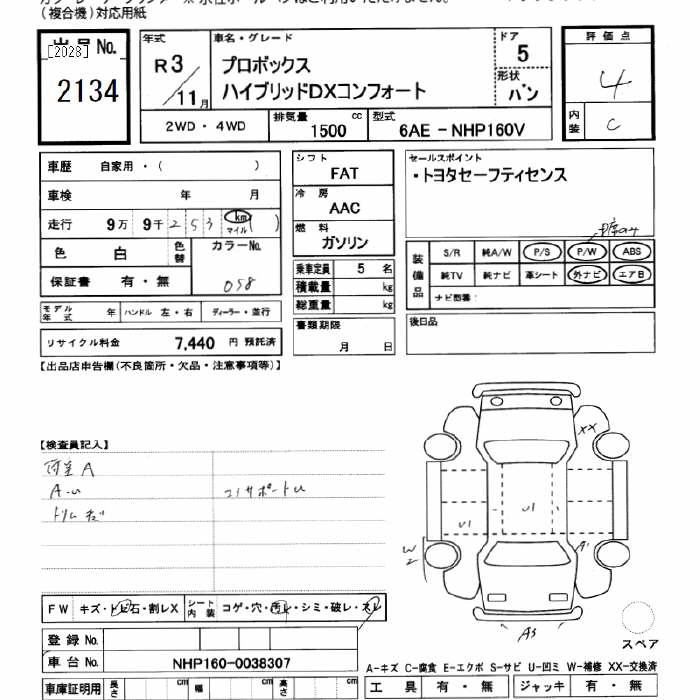 (複合機)対応用紙
出品No.
[2023]
2134
年式
R3/11月
車名・グレード
プロボックス
ハイブリッドDXコンフォート
ドア
5
形状
バン
評価点
4
内装
C
2WD・4WD
排気量 1500 cc
型式 6AE-NHP160V
車歴 自家用・( )
車検 年 月
走行 9万 9千 253 km マイル ( )
色 白
色替
カラーNo.
058
保証書 有・無
モデル年式 年
ハンドル 左・右
ディーラー・並行
リサイクル料金 7,440 円 預託済
シフト
FAT
冷房
AAC
燃料
ガソリン
乗車定員 5 名
積載量 kg
総重量 kg
書類期限
月 日
セールスポイント
・トヨタセーフティセンス
装備品
S/R 純A/W P/S P/W ABS
純TV 純ナビ 革シート 外ナビ エアB
ナビ型番:
後日品
【出品店申告欄(不良箇所・欠品・注意事項等)】
【検査員記入】
荷室A
A-U
コアサポートU
XX
U1
U1
A1
W2
A3
FW キズ・トビ石・割レX
シート内装 コゲ・穴・汚レ・シミ・破レ・スレ
登録No.
車台No. NHP160-0038307
車庫証明用 長さ cm 幅 cm 高さ cm
スペア
A-キズ C-腐食 E-エクボ S-サビ U-凹ミ W-補修 XX-交換済
工具 有・無 ジャッキ 有・無